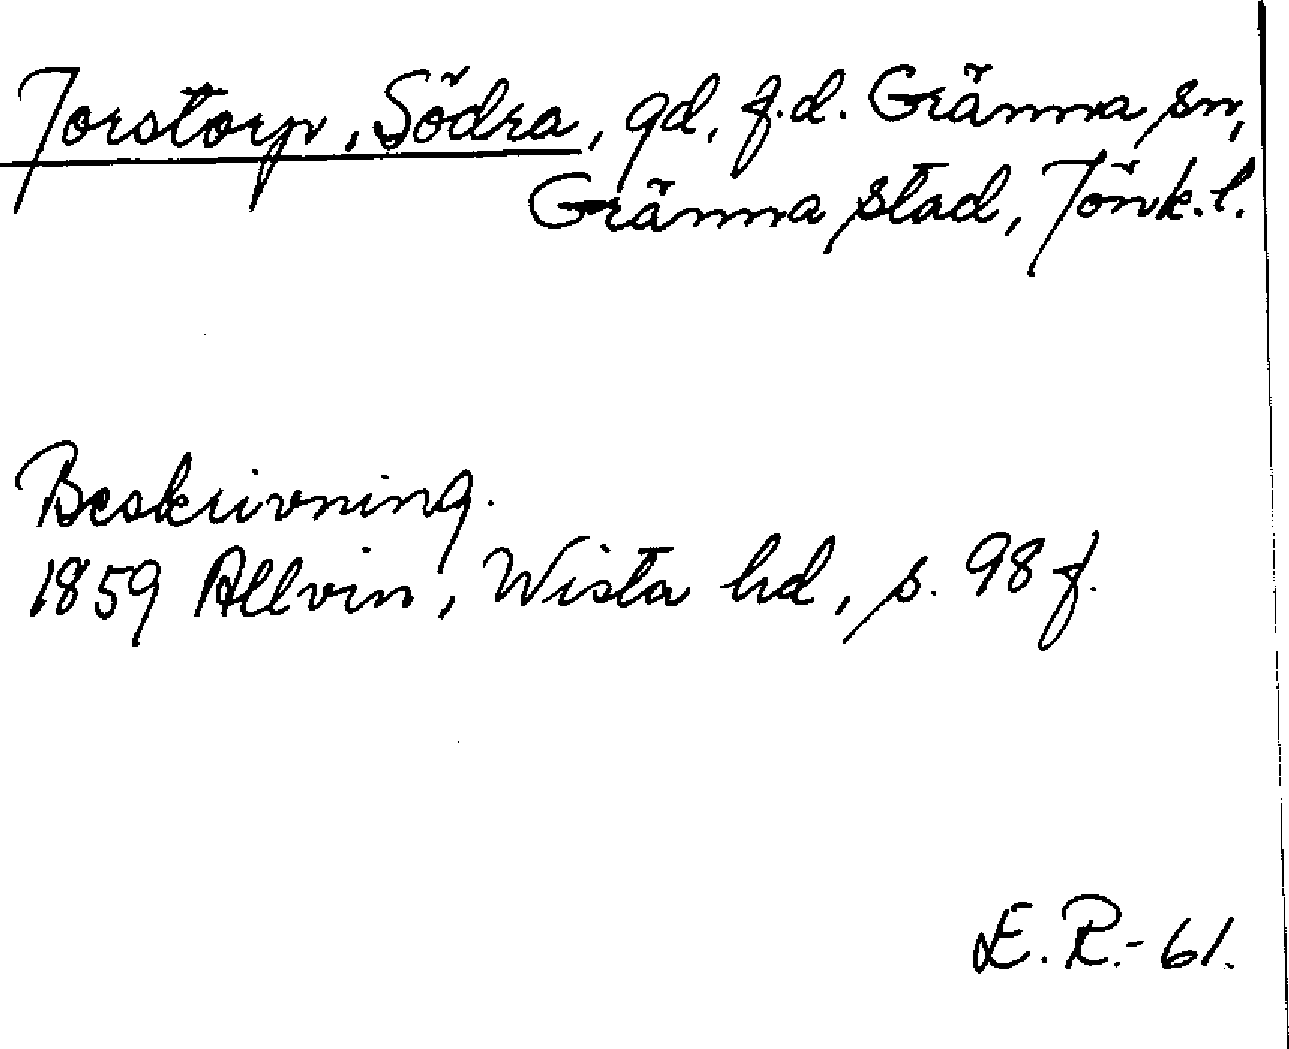 Jorstorp, Södra, gd, f.d. Gränna sn,
Gränna stad, Jönk.l.
Beskrivning.
1859 Allvin, Wista hd, s. 98 f.
E.R.-61.